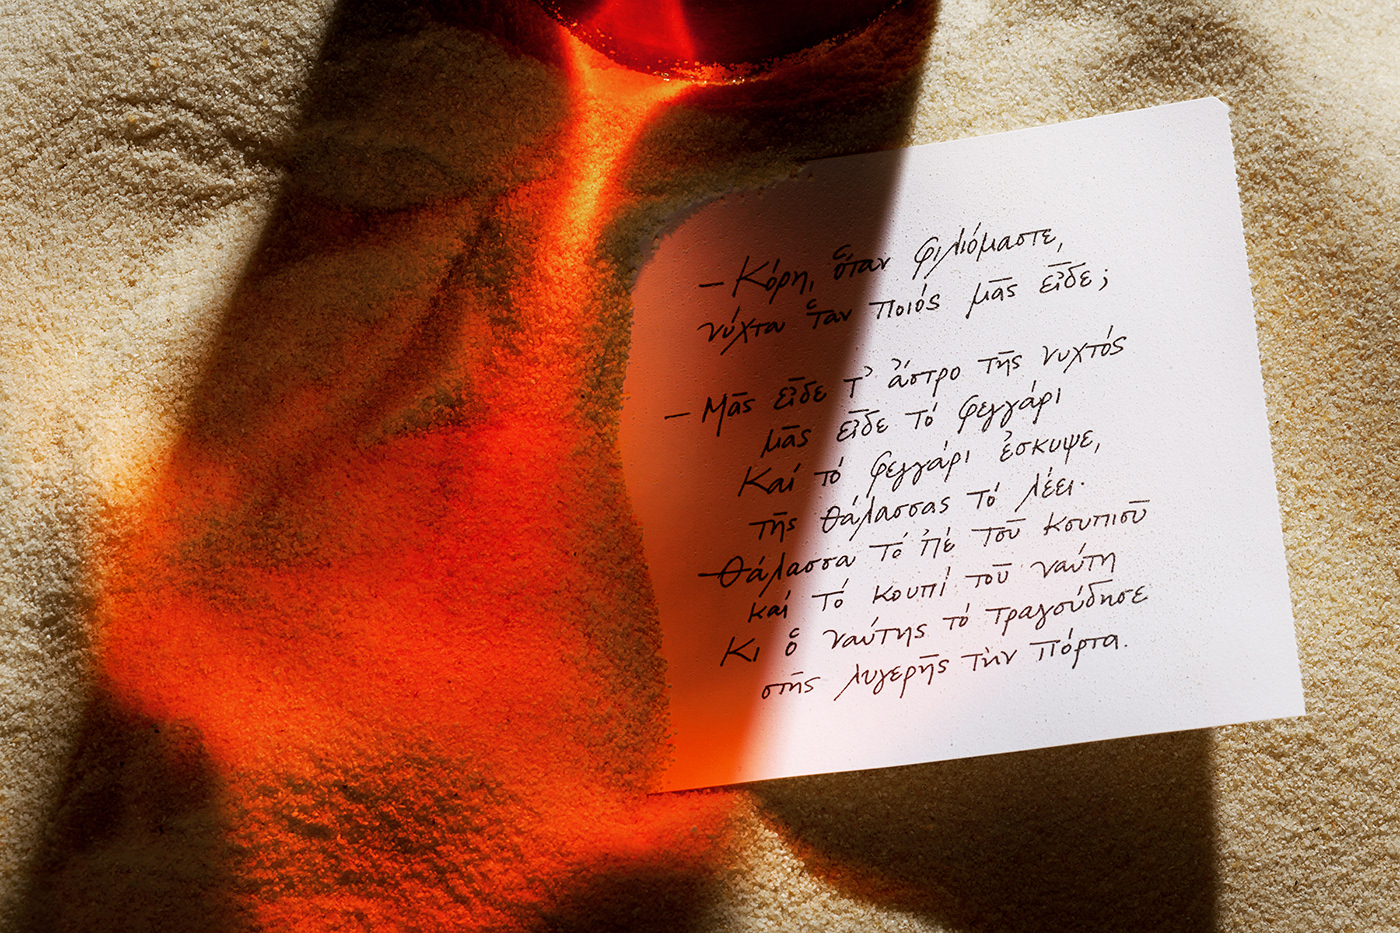 — Κόρη, ὅταν φιλιόμαστε,
νύχτα ἦταν ποιός μᾶς εἶδε;
— Μᾶς εἶδε τ' ἄστρο τῆς νυχτός
μᾶς εἶδε τό φεγγάρι
Καί τό φεγγάρι ἔσκυψε,
τῆς θάλασσας τό λέει·
Θάλασσα τό 'πέ τοῦ κουπιοῦ
καί τό κουπί τοῦ ναύτη
Κι ὁ ναύτης τό τραγούδησε
στῆς λυγερῆς τήν πόρτα.